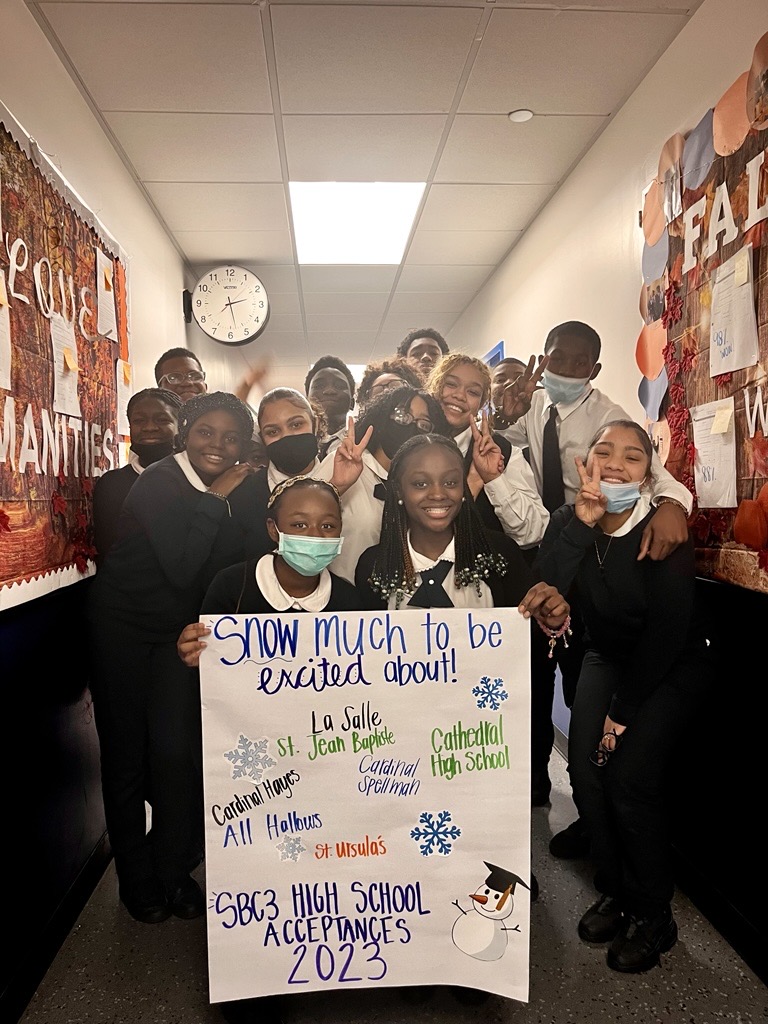 LOVE
MANITIES
12
1
2
3
4
5
6
7
8
9
10
11
FAL
48%
WON
W
88%
Snow much to be
excited about!
La Salle
St. Jean Baptiste
Cathedral
High School
Cardinal
Spellman
Cardinal Hayes
All Hallows
St. Ursula's
SBC3 HIGH SCHOOL
ACCEPTANCES
2023